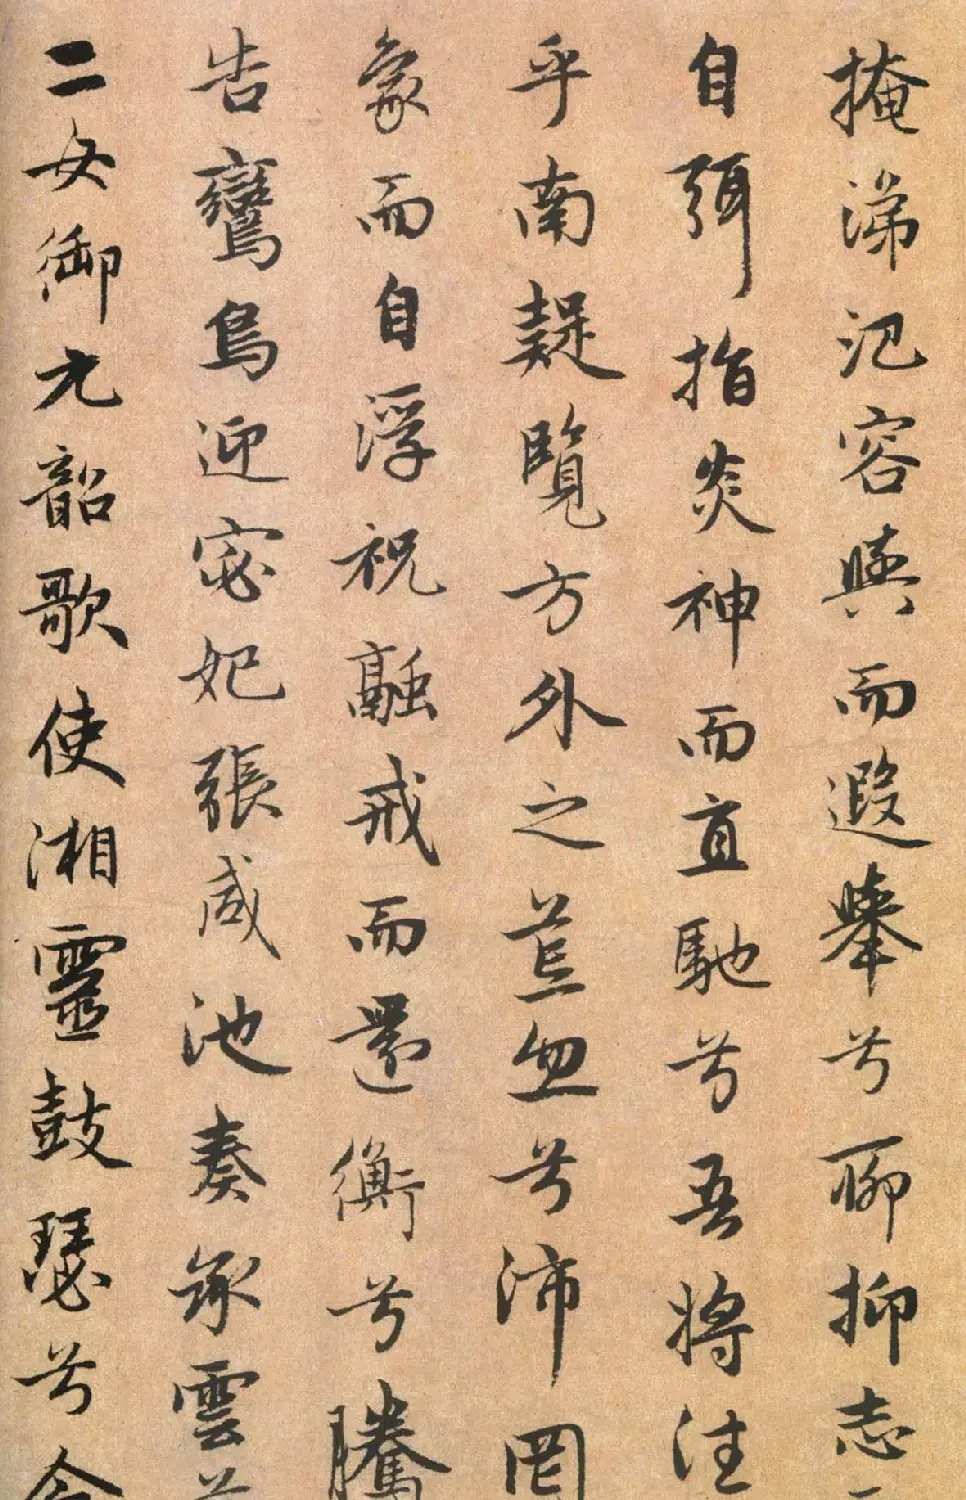 掩涕汜容與而遐舉兮聊抑志
自弭指炎神而直馳兮吾將往
乎南疑覽方外之荒忽兮沛罔
象而自浮祝融戒而還衡兮騰
告鸞鳥迎宓妃張咸池奏承雲
二女御九韶歌使湘靈鼓瑟兮令